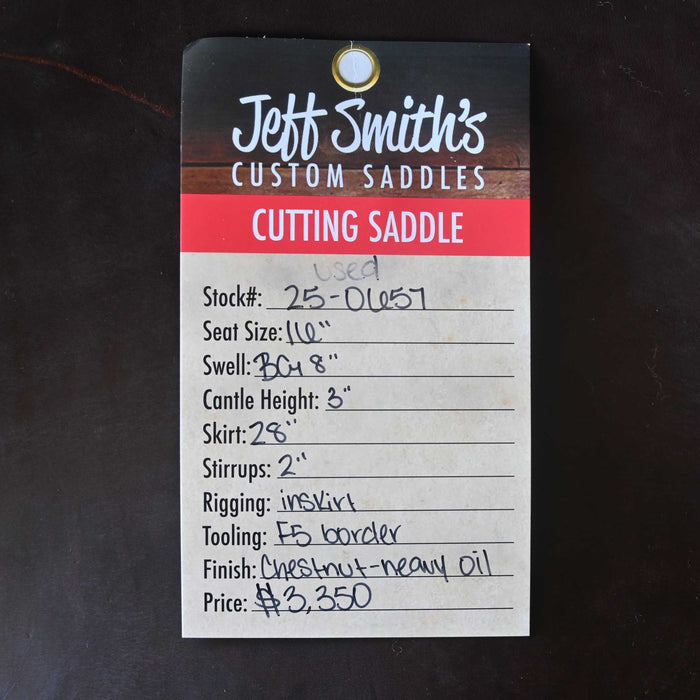 Jeff Smith's
CUSTOM SADDLES
CUTTING SADDLE
used
Stock#: 25-0657
Seat Size: 16"
Swell: BG 8"
Cantle Height: 3"
Skirt: 28"
Stirrups: 2"
Rigging: inskirt
Tooling: F5 border
Finish: Chestnut-heavy oil
Price: $3,350